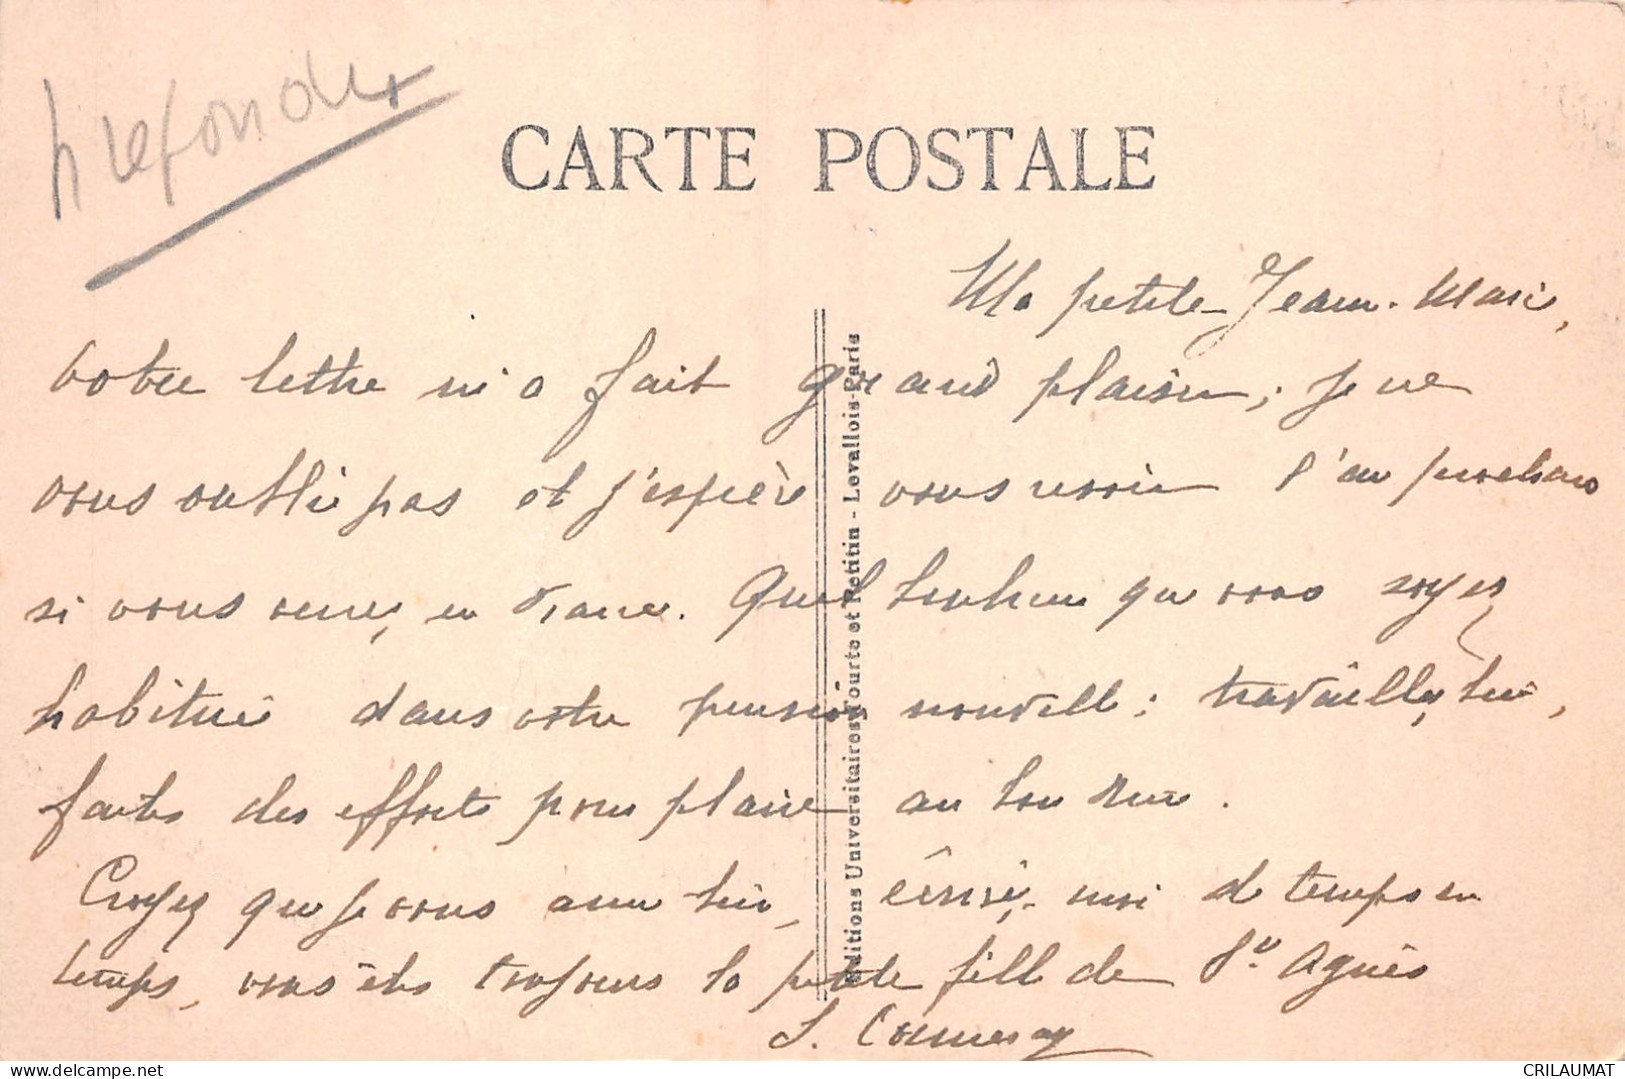 CARTE POSTALE
Ma petite Jean-Marie,
votre lettre m'a fait grand plaisir; je ne
vous oublie pas et j'espère vous revoir l'an prochain
si vous venez en France. Quel bonheur que vous soyez
habituée dans votre pension nouvelle; travaillez bien,
faites des efforts pour plaire au bon Dieu.
Croyez que je vous aime bien, écrivez-moi de temps en
temps, vous êtes toujours la petite fille de Sr Agnès
S.
Editions Universitaires Yourte et Petitin - Levallois-Paris
CRILAUMAT